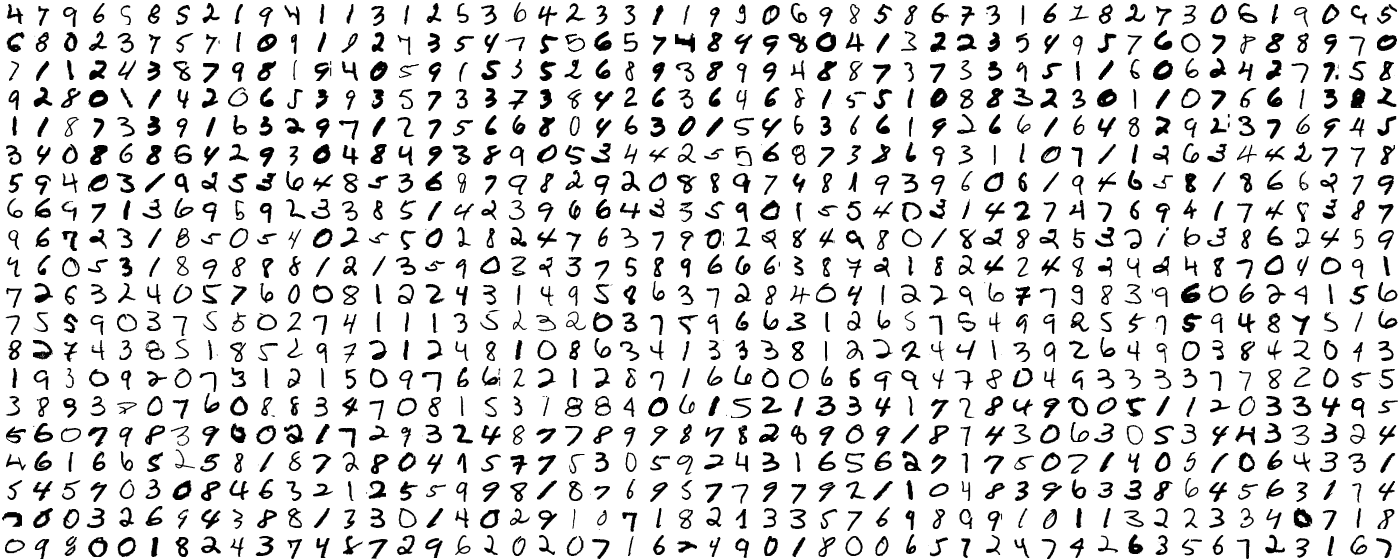 4 7 9 6 5 8 5 2 1 9 4 1 1 3 1 2 5 3 6 4 2 3 3 1 1 9 3 0 6 9 8 5 8 6 7 3 1 6 1 8 2 7 3 0 6 1 9 0 4 5
6 8 0 2 3 7 5 7 1 0 9 1 1 2 7 3 5 4 7 5 5 6 5 7 4 8 4 9 8 0 4 1 3 2 2 3 5 4 9 5 7 6 0 7 8 8 8 9 7 0
7 1 1 2 4 3 8 7 9 8 1 9 4 0 5 9 1 5 3 5 2 6 8 9 3 8 9 9 4 8 8 7 3 7 3 3 9 5 1 1 6 0 6 2 4 2 7 7 5 8
9 2 8 0 1 1 4 2 0 6 5 3 9 3 5 7 3 3 7 3 8 4 2 6 3 6 4 6 8 1 5 5 1 0 8 8 3 2 3 0 1 1 0 7 6 6 1 3 8 2
1 1 8 7 3 3 9 1 6 3 2 9 7 1 2 7 5 6 6 8 0 4 6 3 0 1 5 4 6 3 6 6 1 9 2 6 6 1 6 4 8 2 9 2 3 7 6 9 4 5
3 4 0 8 6 8 6 4 2 9 3 0 4 8 4 9 3 8 9 0 5 3 4 4 2 5 5 6 8 7 3 8 6 9 3 1 1 0 7 1 1 2 6 3 4 4 2 7 7 8
5 9 4 0 3 1 9 2 5 3 6 4 8 5 3 6 8 7 9 8 2 9 2 0 8 8 9 7 4 8 1 9 3 9 6 0 6 1 9 4 6 5 8 1 8 6 6 2 7 9
6 6 9 7 1 3 6 9 5 9 2 3 3 8 5 1 4 2 3 9 6 6 4 3 3 5 9 0 1 5 5 4 0 3 1 4 2 7 4 7 6 9 4 1 7 4 8 3 8 7
9 6 7 2 3 1 8 5 0 5 4 0 2 5 5 0 2 8 2 4 7 6 3 7 9 0 2 2 8 4 9 8 0 1 8 2 8 2 5 3 2 1 6 3 8 6 2 4 5 9
4 6 0 5 3 1 8 9 8 8 8 1 2 1 3 5 9 0 3 2 3 7 5 8 9 6 6 6 3 8 7 2 1 8 2 4 2 4 8 2 4 2 4 8 7 0 4 0 9 1
7 2 6 3 2 4 0 5 7 6 0 0 8 1 2 2 4 3 1 4 9 5 8 6 3 7 2 8 4 0 4 1 2 2 9 6 7 7 9 8 3 9 6 0 6 2 9 1 5 6
7 5 5 9 0 3 7 5 5 5 0 2 7 4 1 1 1 3 5 2 3 2 0 3 7 5 9 6 6 3 1 2 6 5 7 5 4 9 9 2 5 5 7 5 9 4 8 7 5 1 6
8 2 7 4 3 8 5 1 8 5 2 9 7 2 1 2 4 8 1 0 8 6 3 4 1 3 3 3 8 1 2 2 2 4 4 1 3 9 2 6 4 9 0 3 8 4 2 0 4 3
1 9 3 0 9 2 0 7 3 1 2 1 5 0 9 7 6 6 2 2 1 2 8 7 1 6 6 0 0 6 6 9 9 4 7 8 0 4 9 3 3 3 3 7 7 8 2 0 5 5
3 8 9 3 0 7 6 0 8 8 3 4 7 0 8 1 5 3 1 8 8 4 0 6 1 5 2 1 3 3 4 1 7 2 8 4 9 0 0 5 1 1 2 0 3 3 4 9 5
5 6 0 7 9 8 3 9 0 0 2 1 7 2 9 3 2 4 8 7 7 8 9 9 8 7 8 2 8 9 0 9 1 8 7 4 3 0 6 3 0 5 3 4 4 3 3 3 2 4
4 6 1 6 6 5 2 5 8 1 8 7 2 8 0 4 1 5 7 7 5 3 0 5 9 2 4 3 1 6 5 6 2 7 1 7 5 0 7 1 4 0 5 1 0 6 4 3 3 1
5 4 5 7 0 3 0 8 4 6 3 2 1 2 5 5 9 9 8 1 8 7 6 9 5 7 7 9 7 9 2 1 1 0 4 8 3 9 6 3 3 8 6 4 5 6 3 1 7 4
7 0 0 3 2 6 9 4 3 8 8 1 3 3 0 1 4 0 2 9 1 0 7 1 8 2 1 3 3 5 7 6 9 8 9 9 1 0 1 1 3 2 2 3 3 4 0 7 1 8
0 9 8 0 0 1 8 2 4 3 7 4 8 7 2 9 6 2 0 2 0 7 1 6 2 4 9 0 1 8 0 0 6 5 7 2 4 7 4 2 6 3 5 6 7 2 3 1 6 7